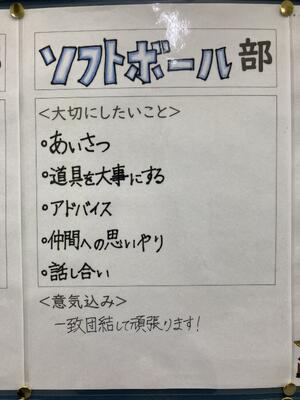 ソフトボール部
<大切にしたいこと>
○あいさつ
○道具を大事にする
○アドバイス
○仲間への思いやり
○話し合い
<意気込み>
一致団結して頑張ります!